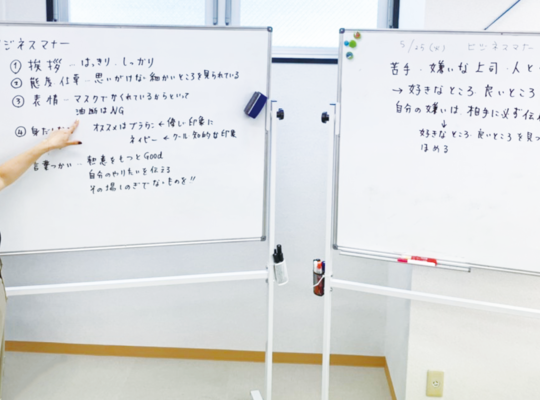 ビジネスマナー
① 挨拶 - はっきり.しっかり
② 態度 仕草 - 思いがけない細かいところを見られている
③ 表情 - マスクでかくれているからといって
油断はNG
④ 身だしなみ
オススメはブラウン ← 優しい印象に
ネイビー ← クール 知的な印象
言葉づかい - 熱意をもつとGood
自分のやりたいを伝える
その場しのぎでないものを!!
5/25(火) ビジネスマナー
苦手.嫌いな上司.人と
→ 好きなところ.良いところ
自分の嫌いは.相手に必ず伝わ
↓
好きなところ.良いところを見つ
ほめる